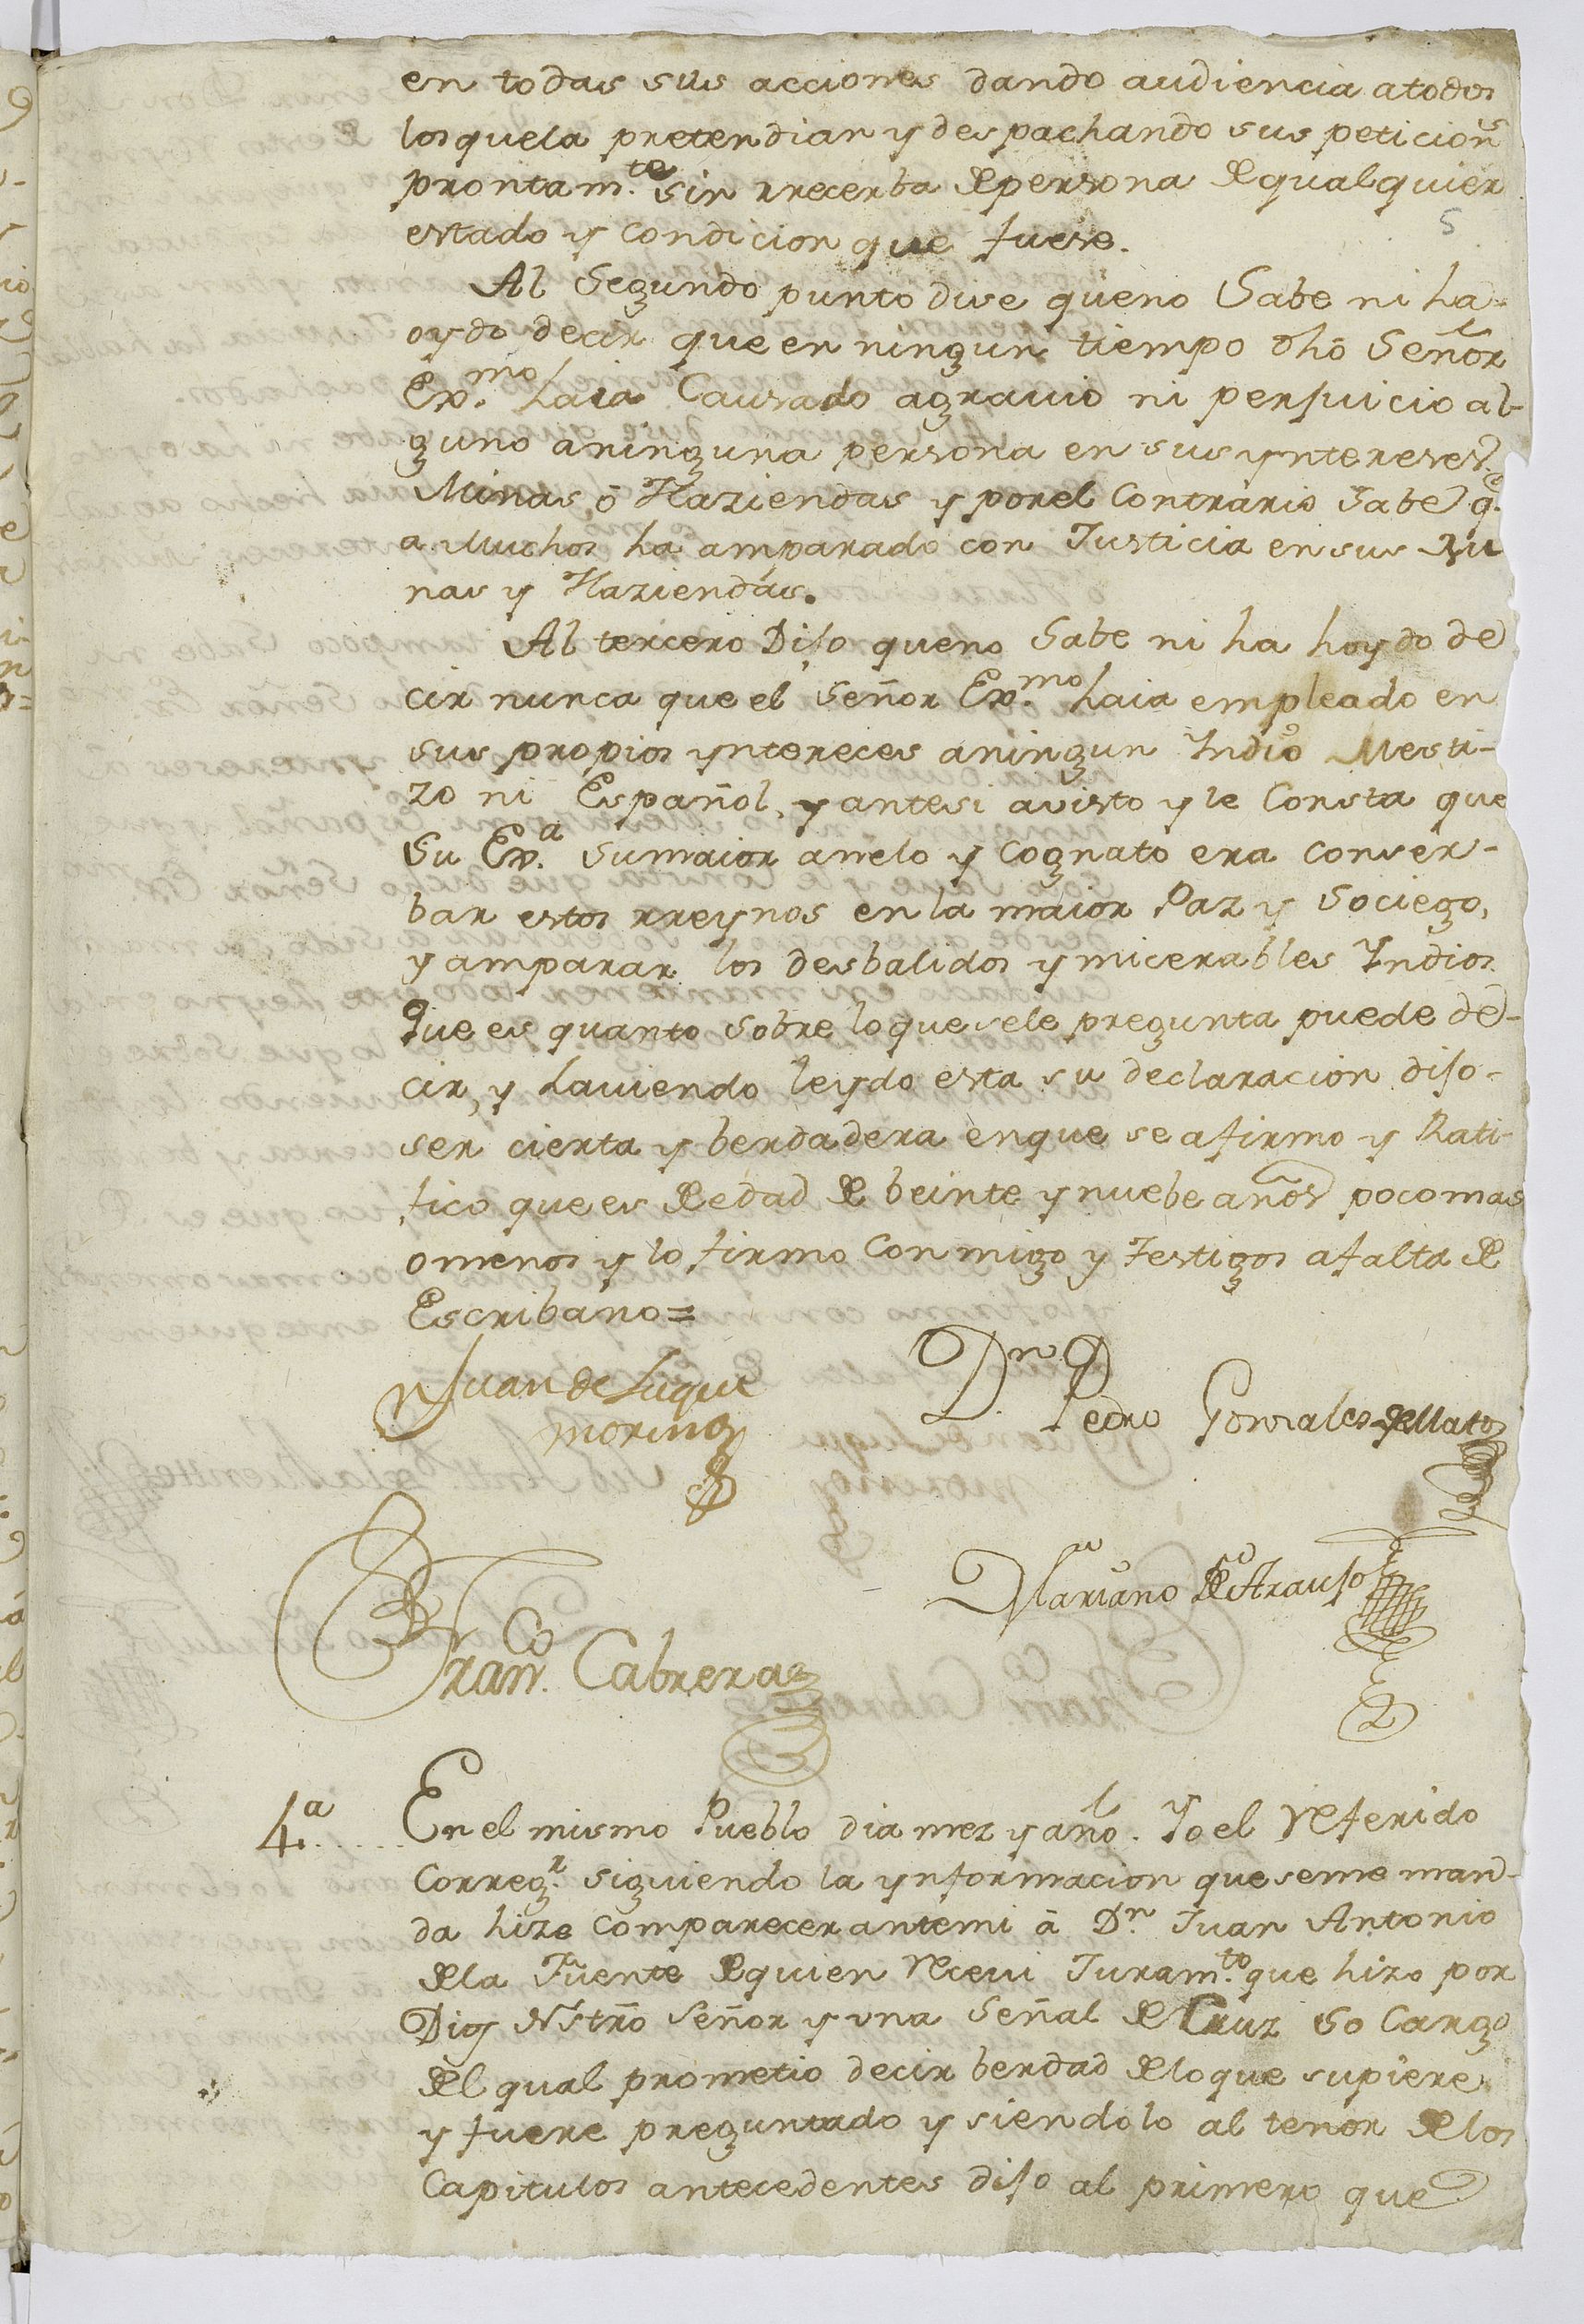 en todas sus acciones dando audiencia atodos
losquela pretendian y despachando sus peticion^s
prontam.^te sin rrecerba de persona de qualquier
estado y condicion que fuese.
5
Al Segundo punto dise queno Sabe ni ha
oydo decir que en ningun tiempo dhõ Señor
Ex.^mo haia Causado agrauio ni perjuicio al-
guno aninguna persona en sus yntereses,
Minas, ô Haziendas y porel Contrario Sabe q.^e
a Muchos ha amparado con Justicia ensus Mi
nas y Haziendas.
Al tercero Dijo queno Sabe ni ha hoydo de
cir nunca que el Señor Ex.^mo haia empleado en
sus propios yntereces aningun Indio Mesti-
zo ni Español, y antesi avisto y le Consta que
Su Ex.^a Sumaior anelo y Cognato era conser-
bar estos rreynos en la maior Paz y Sociego,
y amparar los desbalidos y micerables Indios
Que es quanto sobre loquesele pregunta puede de-
cir, y haviendo leydo esta su declaracion dijo-
ser cierta y berdadera enque se afirmo y Rati-
fico que es de edad de beinte y nuebe años poco mas
omenos y lo firmo Conmigo y Testigos afalta de
Escribano=
Juan de Luque
moreno
D.^n Pedro Gonzales de Mata
Mariano de Araujo
Fran.^co Cabrera
4.^a .... En el mismo Pueblo dia mez y año. Yo el Referido
Correg.^r siguiendo la ynformacion que seme man-
da hize Comparecer antemi â D^n Juan Antonio
de la Fuente de quien Receui Juram.^to que hizo por
Dios Nstrõ Señor y vna Señal de Cruz So Cargo
del qual prometio decir berdad de loque supiere
y fuere preguntado y siendolo al tenor de los
Capitulos antecedentes dijo al primero que